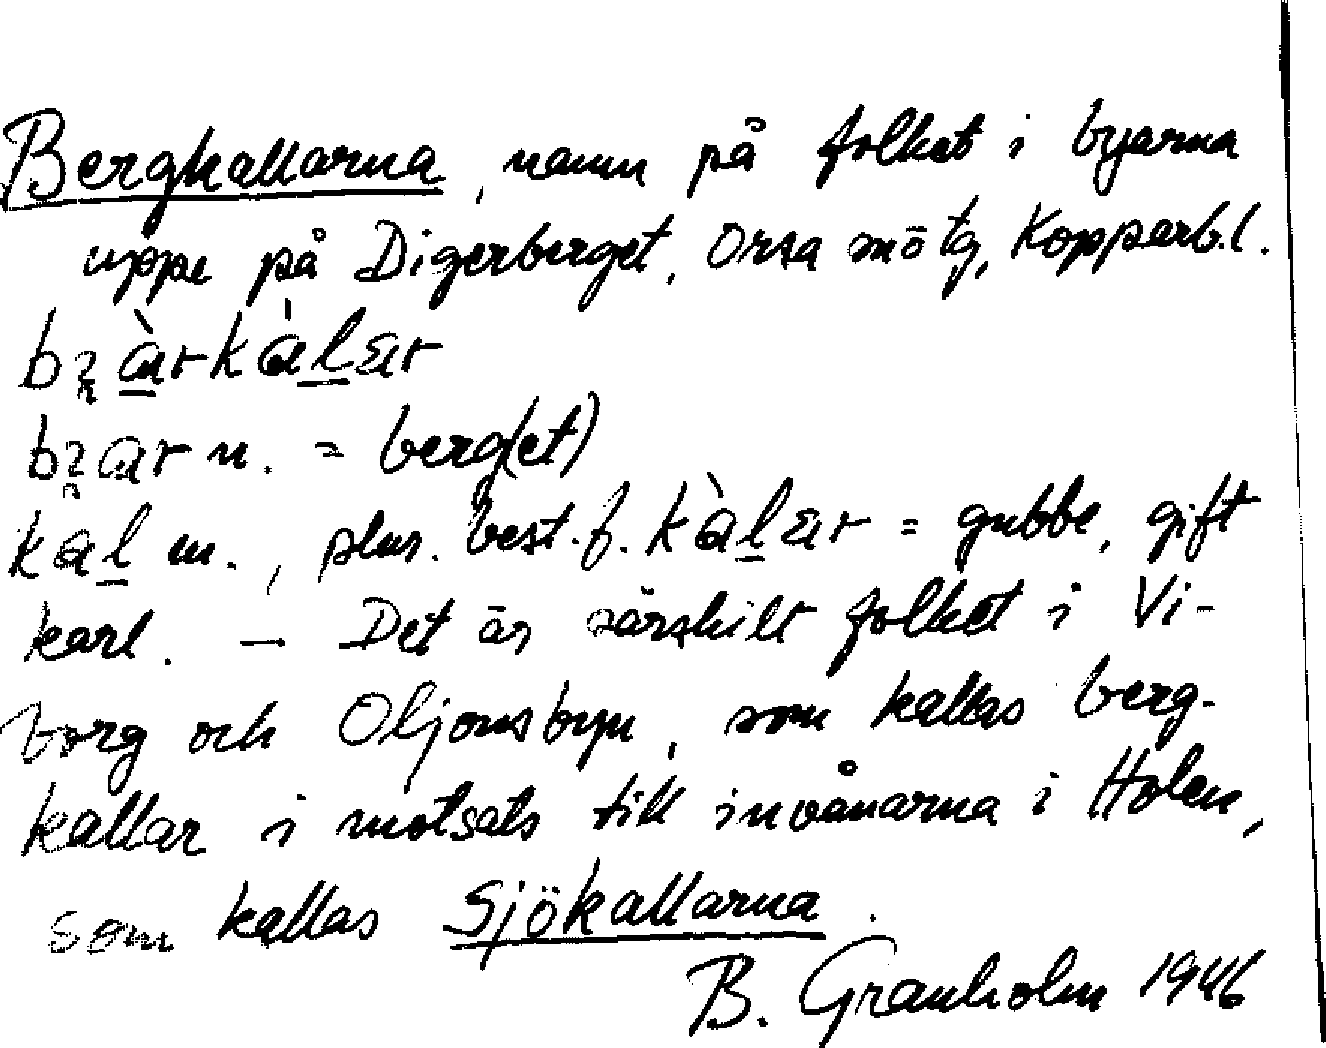 Bergkallarna, namn på folket i byarna
uppe på Digerberget, Orsa sn ö tg, Kopparb.l.
= berg(et)
m., plur. best. f. = gubbe, gift
karl. — Det är särskilt folket i Vi-
borg och Oljonsbyn, som kallas berg-
kallar i motsats till invånarna i Holen,
som kallas Sjökallarna.
B. Granholm 1946